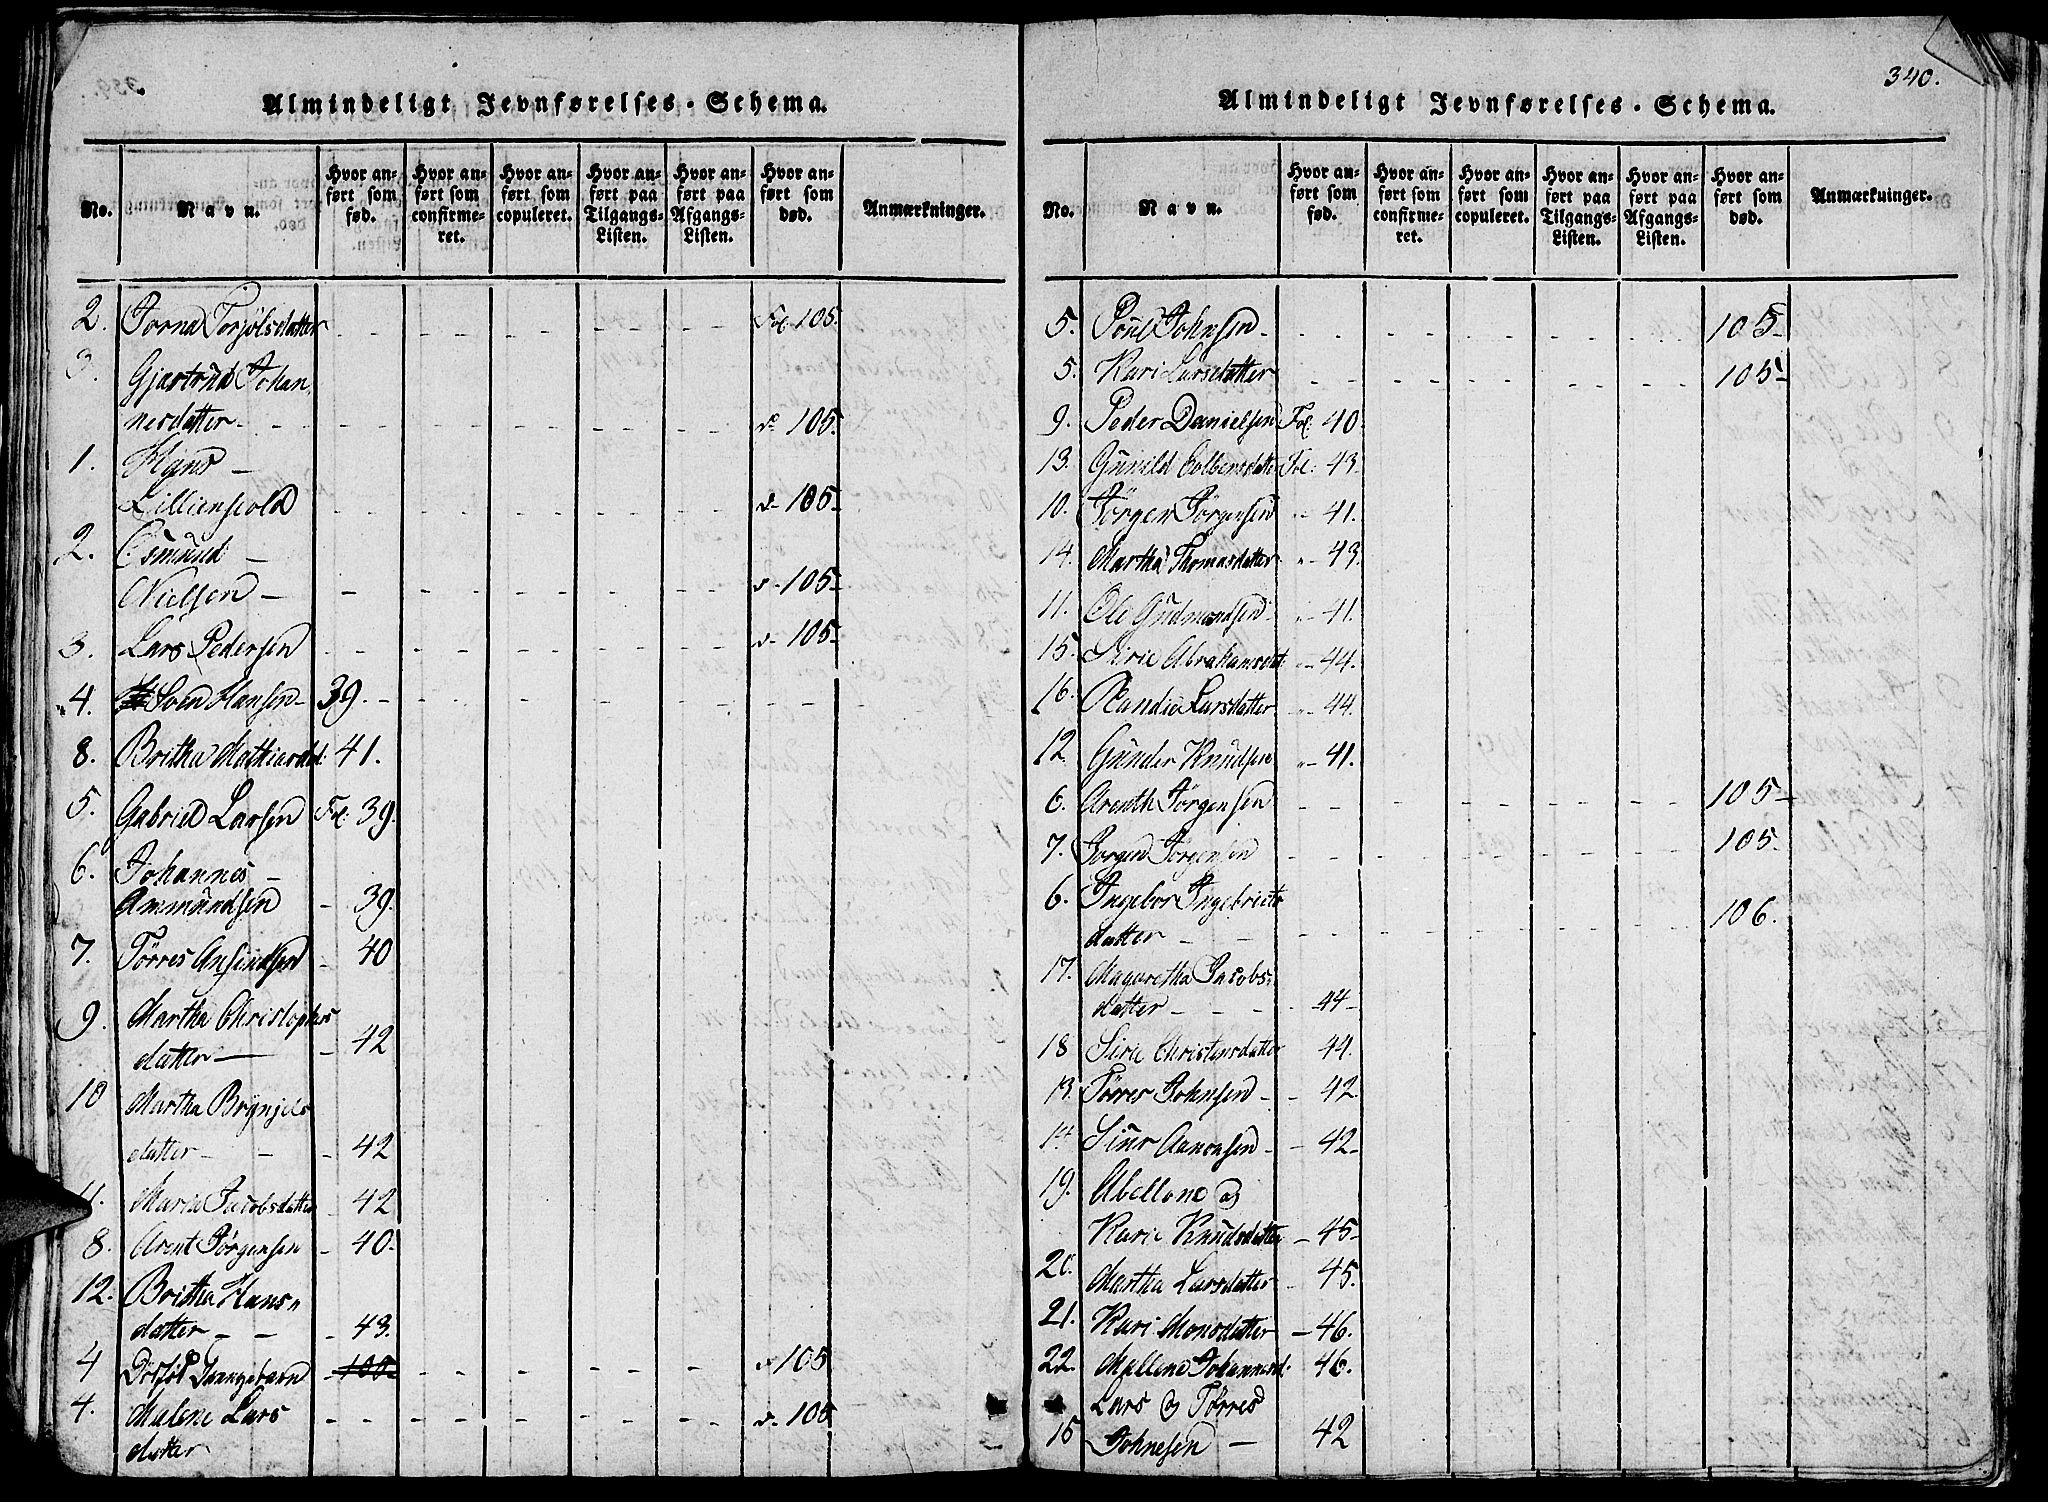 Almindeligt Jevnførelses-Schema.
No. Navn. Hvor anført som fød. Hvor anført som confirmeret. Hvor anført som copuleret. Hvor anført paa Tilgangs-Listen. Hvor anført paa Afgangs-Listen. Hvor anført som død. Anmærkninger.
2. Torjölsdatter Fol. 105.
3. Gjertrud Johan
nesdatter 105.
1. Hans
Lillienskold 105
2. Osmund
Nielsen 105
3. Lars Pedersen 105
4. Sven Hansen 39.
8. Britha Mathiasdt: 41.
5. Gabriel Larsen Fol: 39.
6. Johannes
Ammundsen 39.
7. Törres 40
9. Martha Christophers
datter 42
10 Martha Brynjels
datter 42
11. Maria Jacobsdatter 42
8. Arent Jörgensen 40.
12. Britha Hans
datter 43.
4 105
4. Malene Lars 105
datter
340.
Almindeligt Jevnførelses-Schema.
No. Navn. Hvor anført som fød. Hvor anført som confirmeret. Hvor anført som copuleret. Hvor anført paa Tilgangs-Listen. Hvor anført paa Afgangs-Listen. Hvor anført som død. Anmærkninger.
5. Poul Johnsen 105
5. Kari Larsdatter 105
9. Peder Danielsen Fol: 40
13. Gunild Fol: 43
10. Jörgen Jörgensen 41.
14. Martha Thomasdatter 43
11. Ole Gudmundsen 41
15. Sirie Abrahamsdat: 44.
16. Randie Larsdatter 44.
12. Gunder Knudsen 41.
6. Arenth Jörgensen 105
7. Jörgensen 105
6. Ingebor Ingebriets
datter 106.
17. Magaretha Jacobs
datter 44
18 Sirie Christensdatter 44.
13. Törres Johnsen 42
14. Aanensen 42
19. Abellone og
Karie Knudsdatter 45
20. Martha Larsdatter 45.
21. Kari Monsdatter 46.
22. Mallene Johannesd: 46.
Lars og Törres
15 Johnesen 42